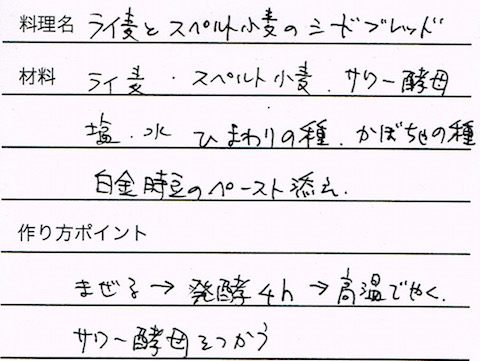 料理名 ライ麦とスペルト小麦のシードブレッド
材料 ライ麦・スペルト小麦.サワー酵母
塩.水 ひまわりの種.かぼちゃの種
白金時豆のペースト添え.
作り方ポイント
まぜる→発酵4h→高温でやく.
サワー酵母をつかう